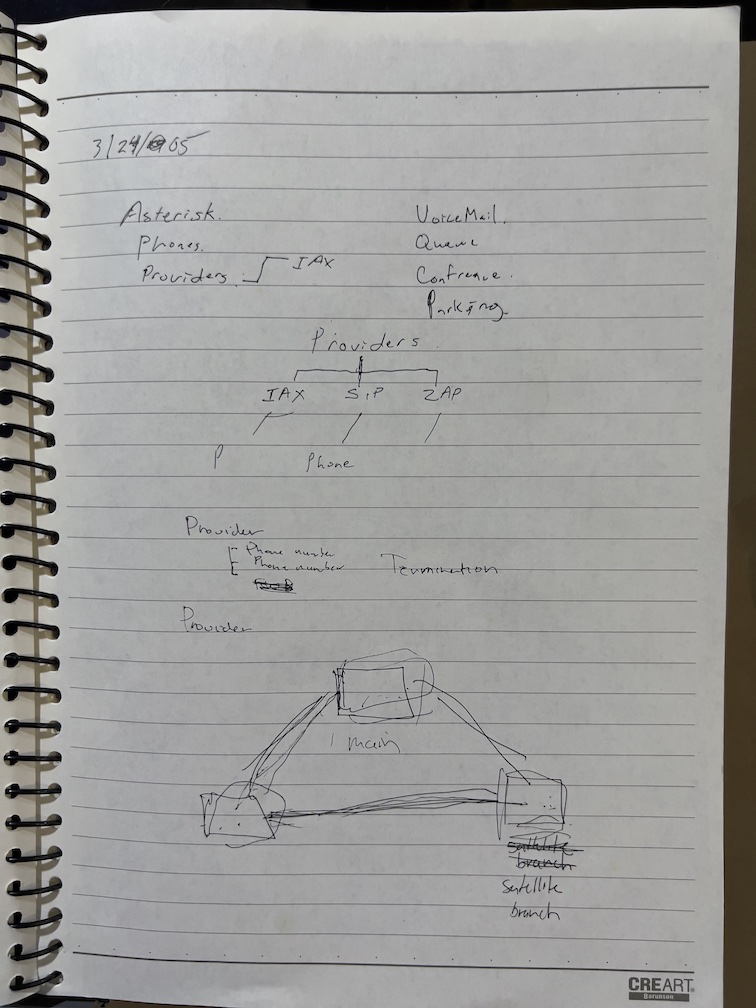 3/24/05
Asterisk.
Phones.
Providers. IAX
VoiceMail.
Queue
Confrence.
Parking
Providers.
IAX SIP ZAP
P Phone
Provider
Phone number
Phone number
Termination
Provider
1 main
satellite
branch
satellite
branch
CREART
Barunson